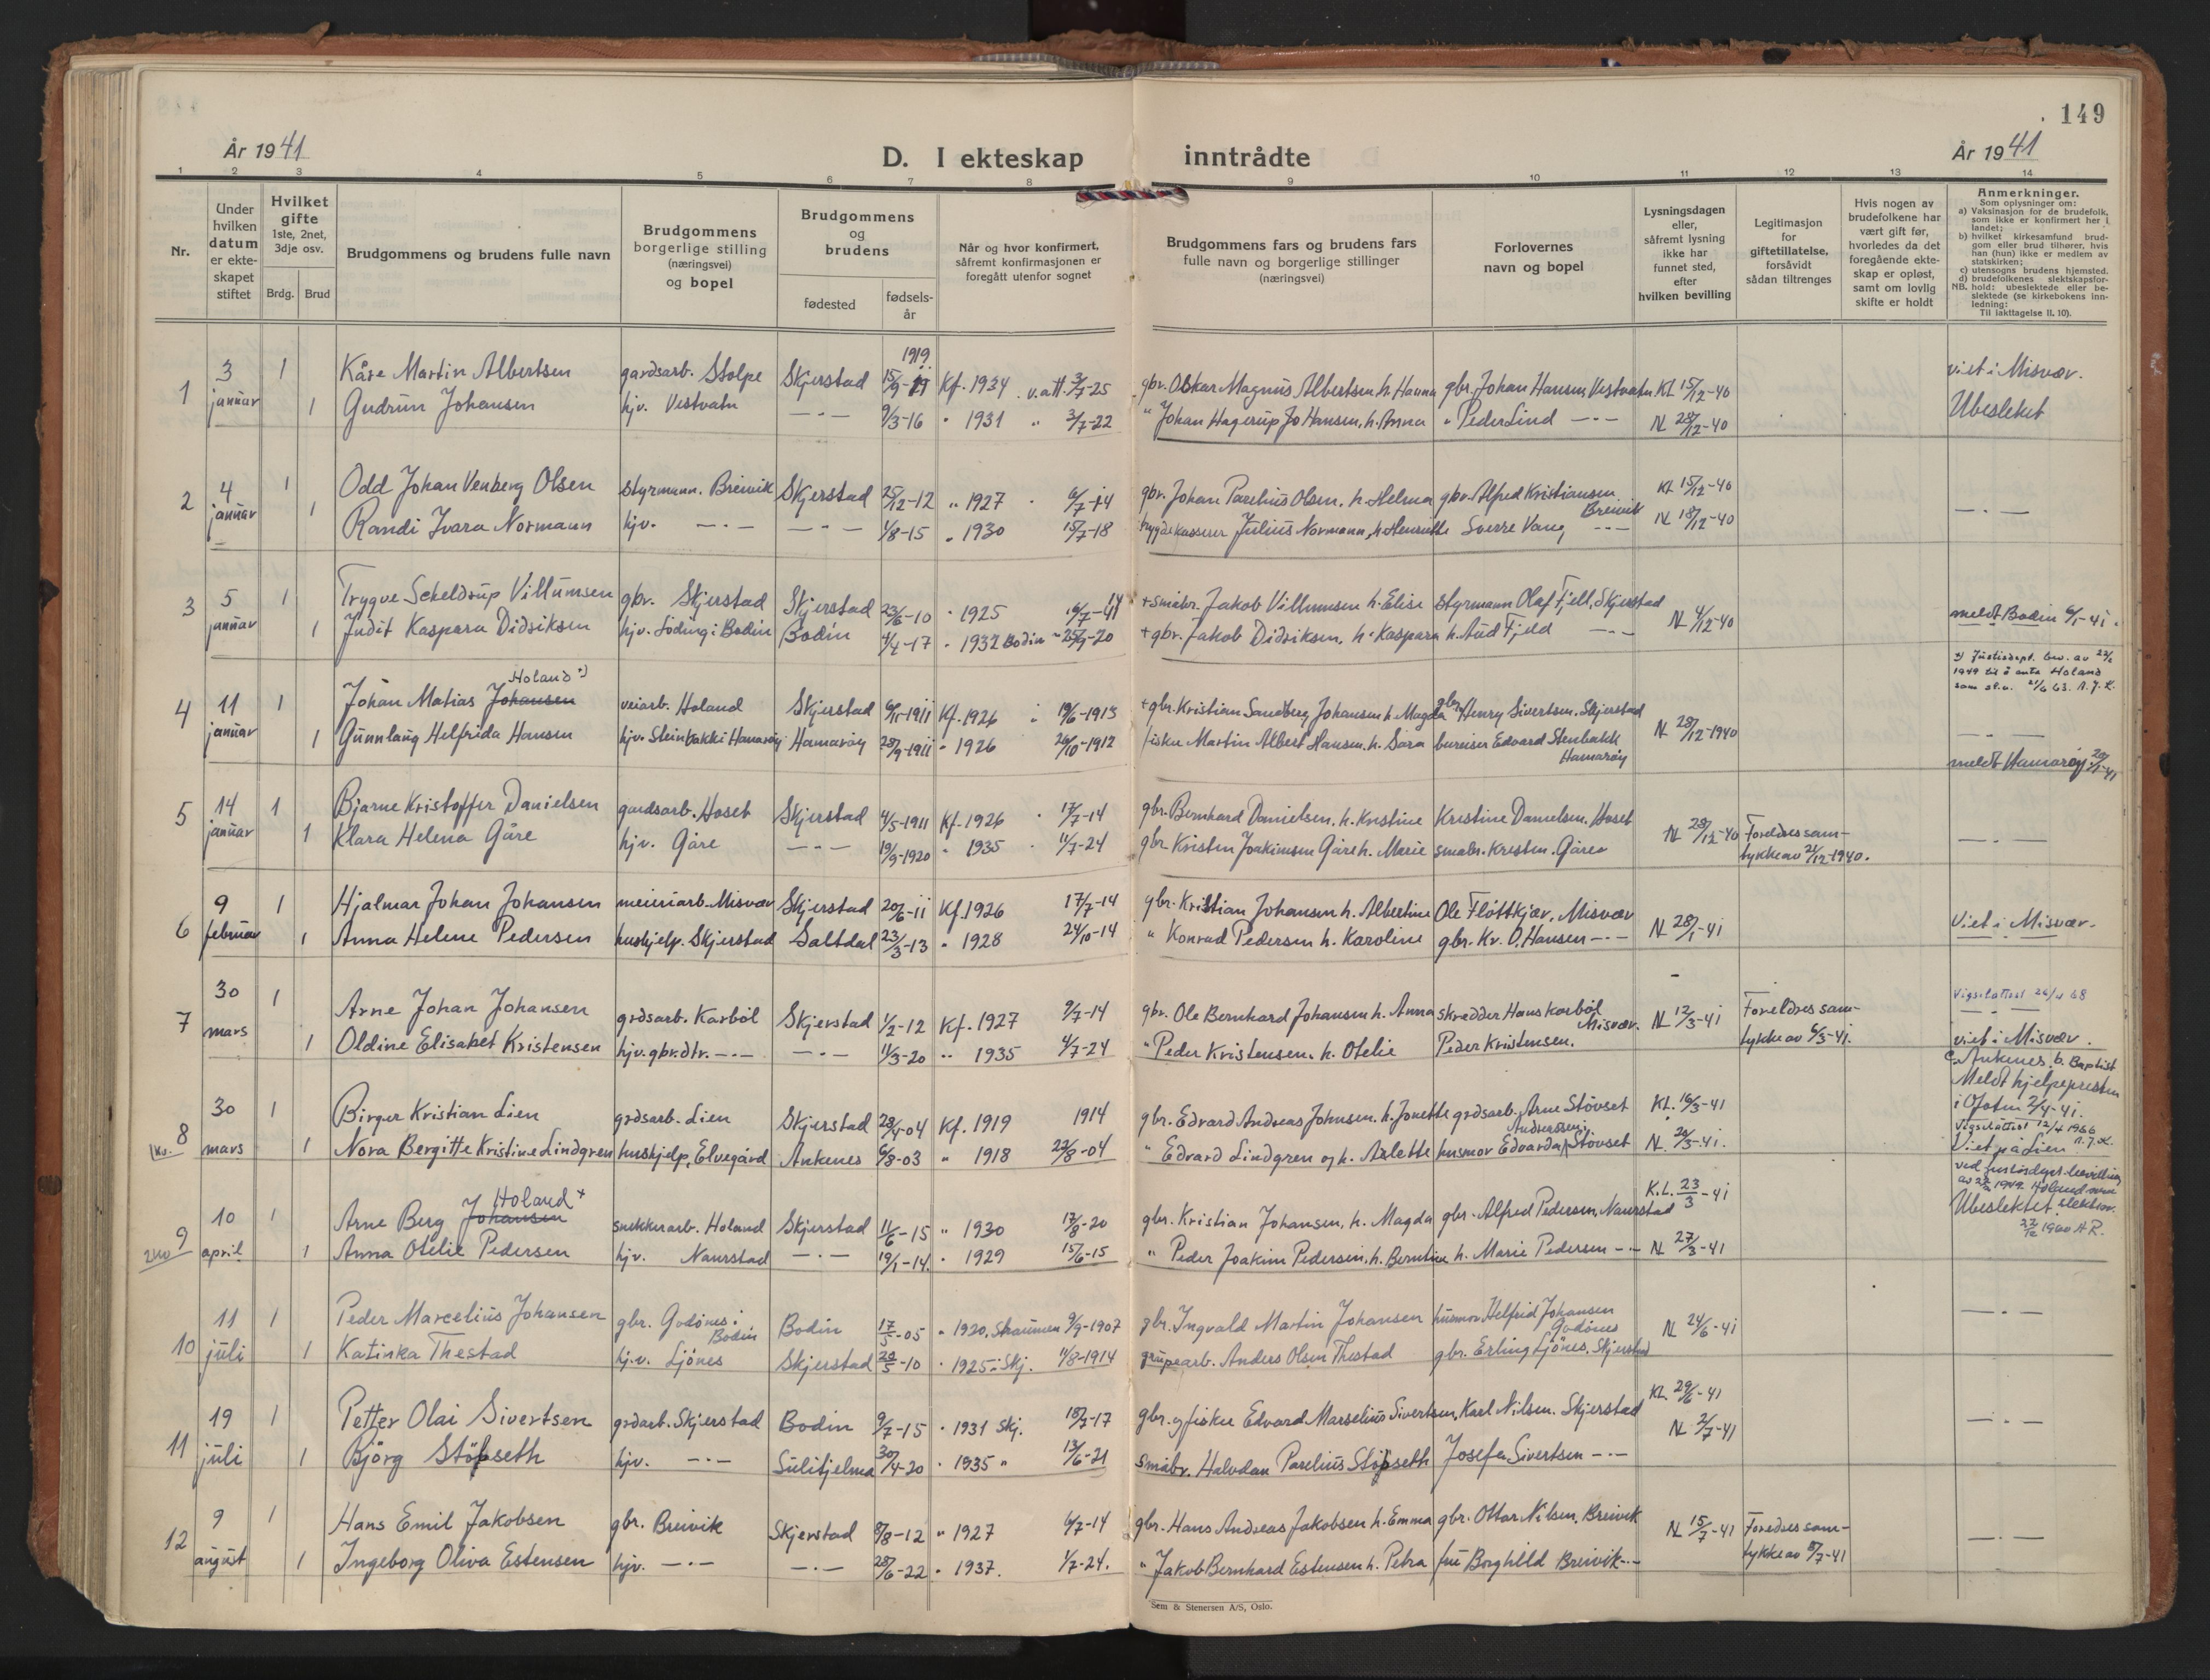 149
År 1941
D. I ekteskap inntrådte
År 1941
1 2 3 4 5 6 7 8 9 10 11 12 13 14
Nr.
Under hvilken datum er ekte-skapet stiftet
Hvilket gifte 1ste, 2net, 3dje osv.
Brdg. Brud
Brudgommens og brudens fulle navn
Brudgommens borgerlige stilling (næringsvei) og bopel
Brudgommens og brudens
fødested
fødsels-år
Når og hvor konfirmert, såfremt konfirmasjonen er foregått utenfor sognet
Brudgommens fars og brudens fars fulle navn og borgerlige stillinger (næringsvei)
Forlovernes navn og bopel
Lysningsdagen eller, såfremt lysning ikke har funnet sted, efter hvilken bevilling
Legitimasjon for giftetillatelse, forsåvidt sådan tiltrenges
Hvis nogen av brudefolkene har vært gift før, hvorledes da det foregående ekte-skap er opløst, samt om lovlig skifte er holdt
Anmerkninger.
Som oplysninger om:
a) Vaksinasjon for de brudefolk, som ikke er konfirmert her i landet;
b) hvilket kirkesamfund brud-gom eller brud tilhører, hvis han (hun) ikke er medlem av statskirken;
c) utensogns brudens hjemsted.
d) brudefolkenes slektskapsfor-hold: ubeslektede eller be-slektede (se kirkebokens inn-ledning:
NB.
Til iakttagelse II. 10).
1 3 januar 1 Kåre Martin Albertsen gardsarb. Stolpe Skjerstad 15/9-19 1919 Kf. 1934 v. att 3/7-25 gbr. Oskar Magnus Albertsen h. Hanna gbr. Johan Hansen Vestvatn Kl 15/12-40 viet i Misvær.
1 Gudrun Johansen hjv. Vestvatn —"— 9/3-16 " 1931 " 3/7-22 " Johan Hagerup Johansen, h. Anna " Peder Lind —"— N 28/12-40 Ubeslektet
2 4 januar 1 Odd Johan Venberg Olsen styrmann. Breivik Skjerstad 25/12-12 " 1927 " 6/7-14 gbr. Johan Parelius Olsen, h. Helma gbr. Alfred Kristiansen Breivik Kl 15/12-40
1 Randi Ivara Normann hjv. —"— —"— 1/8-15 " 1930 15/7-18 trygdekasserer Julius Normann, h. Henriette Sverre Vang —"— N 18/12-40 —"—
3 5 januar 1 Trygve Scheldrup Villumsen gbr. Skjerstad Skjerstad 23/6-10 " 1925 16/7-11 + småbr. Jakob Villumsen h. Elise styrmann Olaf Fjell, Skjerstad N 4/12-40
1 Judit Kaspara Didriksen hjv. Löding i Bodin Bodin 4/4-17 " 1932 Bodin " 25/9-20 + gbr. Jakob Didriksen, h. Kaspara h. Aud Fjeld —"— meldt Bodin 6/1-41.
4 11 januar 1 Johan Matias Johansen Holand +) veiarb. Holand Skjerstad 6/11-1911 Kf. 1926 " 19/6-1913 + gbr. Kristian Sandberg Johansen h. Magda gbr. Henry Sivertsen. Skjerstad N 28/12-1940
1 Gunnlaug Helfrida Hansen hjv. Steinbakk i Hamarøy Hamarøy 28/9-1911 " 1926 26/10-1912 fisker Martin Albert Hansen, h. Sara bureiser Edvard Stenbakk Hamarøy
1949 til å anta Holand
meldt Hamarøy 20/1-41
5 14 januar 1 Bjarne Kristoffer Danielsen gardsarb. Hoset Skjerstad 4/5-1911 Kf. 1926 " 17/7-14 gbr. Bernhard Danielsen, h. Kristine Kristine Danielsen. Hoset N 28/12-40 Foreldres sam-tykke av 21/12-1940.
1 Klara Helena Gåre hjv. Gåre —"— 19/9-1920 " 1935 " 11/7-24 gbr. Kristen Joakimsen Gåre h. Marie småbr. Kristen. Gåre —"—
6 9 februar 1 Hjalmar Johan Johansen meieriarb. Misvær Skjerstad 20/6-11 Kf. 1926 17/7-14 gbr. Kristian Johansen h. Albertine Ole Flöttkjær, Misvær N 28/1-41 Viet i Misvær.
1 Anna Helene Pedersen hushjelp. Skjerstad Saltdal 23/3-13 " 1928 24/10-14 " Konrad Pedersen h. Karoline gbr. Kr. O. Hansen —"—
7 30 mars 1 Arne Johan Johansen grdsarb. Karböl Skjerstad 1/2-12 Kf. 1927 9/7-14 gbr. Ole Bernhard Johansen h. Anna skredder Hans Karböl Misvær. N 12/3-41 Foreldres sam-tykke av 6/3-41.
1 Oldine Elisabet Kristensen hjv. gbr.dtr. —"— —"— 11/3-20 " 1935 4/7-24 " Peder Kristensen, h. Otelie Peder Kristensen. viet i Misvær.
8 30 mars 1 Birger Kristian Lien grdsarb. Lien Skjerstad 28/4-04 Kf. 1919 1914 gbr. Edvard Andreas Johnsen. h. Jonette grdsarb. Arne Stövset Kl. 16/3-41
1 Nora Bergitte Kristine Lindgren hushjelp, Elvegård Ankenes 6/8-03 " 1918 22/8-04 " Edvard Lindgren og h. Arlette husmor Edvarda Andersen Stövset N 20/3-41.
c. Ankenes. b. Baptist
Meldt hjelpepresten
i Ofoten 2/4-41.
Vigselattest 12/4 1966
Viet på Lien
9 10 april 1 Arne Berg Johansen Holand + snekkerarb. Holand Skjerstad 11/6-15 " 1930 17/8-20 gbr. Kristian Johansen, h. Magda gbr. Alfred Pedersen, Naurstad K.L. 23/3-41
1 Anna Otelie Pedersen hjv. Naurstad —"— 19/1-14. " 1929 15/6-15 " Peder Joakim Pedersen, h. Berntine h. Marie Pedersen —"— N 27/3-41
Ubeslektet.
10 11 juli 1 Peder Marcelius Johansen gbr. Godönes i Bodin Bodin 17/5-05 " 1920, Straumen 9/9-1907 gbr. Ingvald Martin Johansen husmor Helfrid Johansen Godönes N 24/6-41 —"—
1 Katinka Thestad hjv. Ljönes Skjerstad 20/5-10 " 1925 i Skj. 11/8-1914 grupearb. Anders Olsen Thestad gbr. Erling Ljönes, Skjerstad
11 19 juli 1 Petter Olai Sivertsen grdarb. Skjerstad Bodin 9/7-15 " 1931 Skj. 18/7-17 gbr. og fisker Edvard Marselius Sivertsen, Karl Nilsen. Skjerstad Kl. 29/6-41 —"—
1 Björg Stöpseth hjv. —"— Sulitjelma 30/4-20 " 1935 " 13/6-21 småbr. Halvdan Parelius Stöpseth Josefa Sivertsen —"— N 2/7-41
12 9 august 1 Hans Emil Jakobsen gbr. Breivik Skjerstad 8/8-12 " 1927 6/7-14 gbr. Hans Andreas Jakobsen h. Emma gbr. Ottar Nilsen, Breivik N 15/7-41 Foredres sam-tykke av 8/7-41
1 Ingeborg Oliva Estensen hjv. —"— —"— 28/6-22 " 1937. 1/7-24. " Jakob Bernhard Estensen h. Petra fru Borghild Breivik —"— —"—
Sem & Stenersen A/S, Oslo.